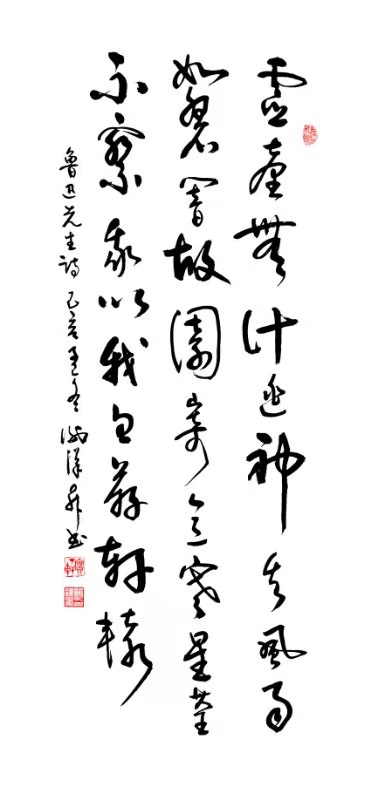 靈臺無計逃神矢風雨
如磐闇故園寄意寒星荃
不察我以我血薦軒轅
魯迅先生詩 己亥孟冬 書